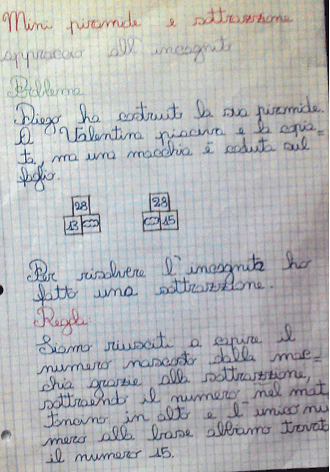 Mini piramide e sottrazione
approccio all'incognita
Problema
Diego ha costruito la sua piramide.
A Valentina piaceva e la copia=
ta, ma una macchia è caduta sul
foglio.
28 28
13 15
Per risolvere l'incognita ho
fatto una sottrazione.
Regola
Siamo riusciti a capire il
numero nascosto dalla mac=
chia grazie alla sottrazione,
sottraendo il numero nel mat
toncino in alto e l'unico nu
mero alla base abbiamo trovato
il numero 15.